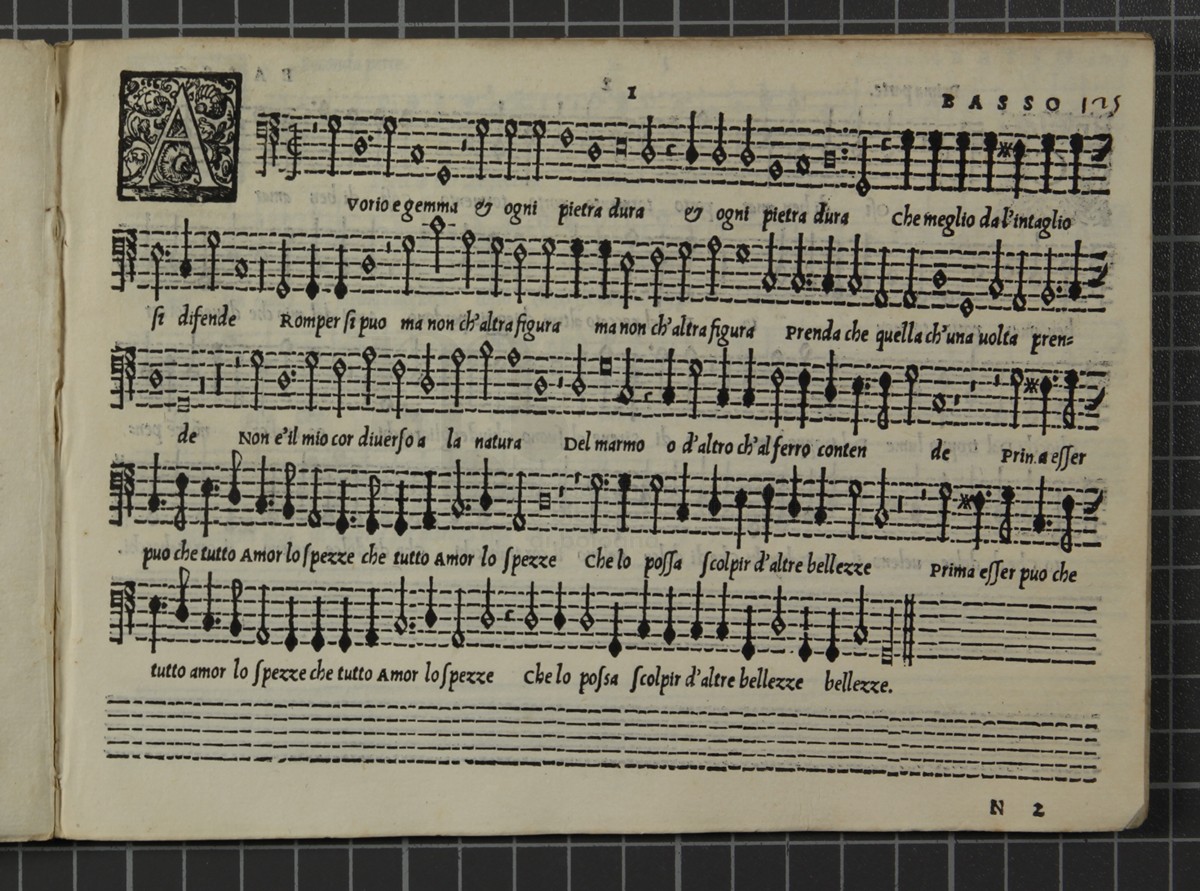 1
BASSO 125
AVorio e gemma & ogni pietra dura & ogni pietra dura Che meglio da l'intaglio
si difende Romper si puo ma non ch'altra figura ma non ch'altra figura Prenda che quella ch'una uolta pren=
de Non e'il mio cor diuerso a la natura Del marmo o d'altro ch'al ferro conten de Prima esser
puo che tutto Amor lo spezze che tutto Amor lo spezze Che lo possa scolpir d'altre bellezze Prima esser puo che
tutto amor lo spezze che tutto Amor lo spezze Che lo possa scolpir d'altre bellezze bellezze.
N 2